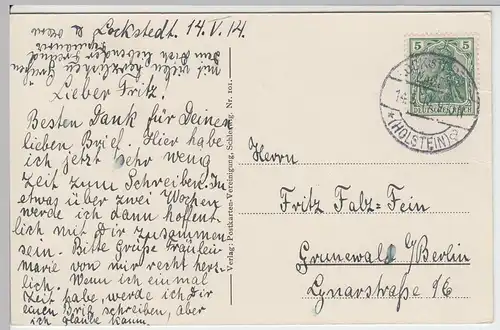 Lockstedt. 14.V.14.
mit vielen herzlichen Grüßen
Dein Dich liebender Freund
Lieber Fritz.
Besten Dank für Deinen
lieben Brief. Hier habe
ich jetzt sehr wenig
Zeit zum Schreiben. In
etwas über zwei Wochen
werde ich dann hoffent-
lich mit Dir zusammen
sein. Bitte grüße Fräulein
marie von mir recht herz-
lich. Wenn ich einmal
Zeit habe, werde ich Dir
einen Brief schreiben, aber
ich glaube kaum.
Verlag: Postkarten-Vereinigung, Schleswig. Nr. 101.
5 5
DEUTSCHES REICH
(HOLSTEIN)
Herrn
Fritz Falz=Fein
Grunewald b/Berlin
Lynarstraße 16